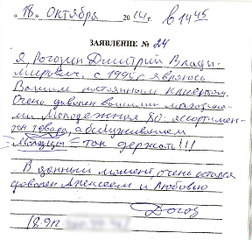 18. Октября 2014г. в 14 45
ЗАЯВЛЕНИЕ № 24
Я Рогозин Дмитрий Влади-
мирович, с 1995г являюсь
Вашим постоянным клиентом.
Очень доволен вашими магазина-
ми Молодежная 80 ассортимен-
том товара, обслуживанием
Молодцы = так держать!!!
В данный момент очень остался
доволен Алексеем и Любовью